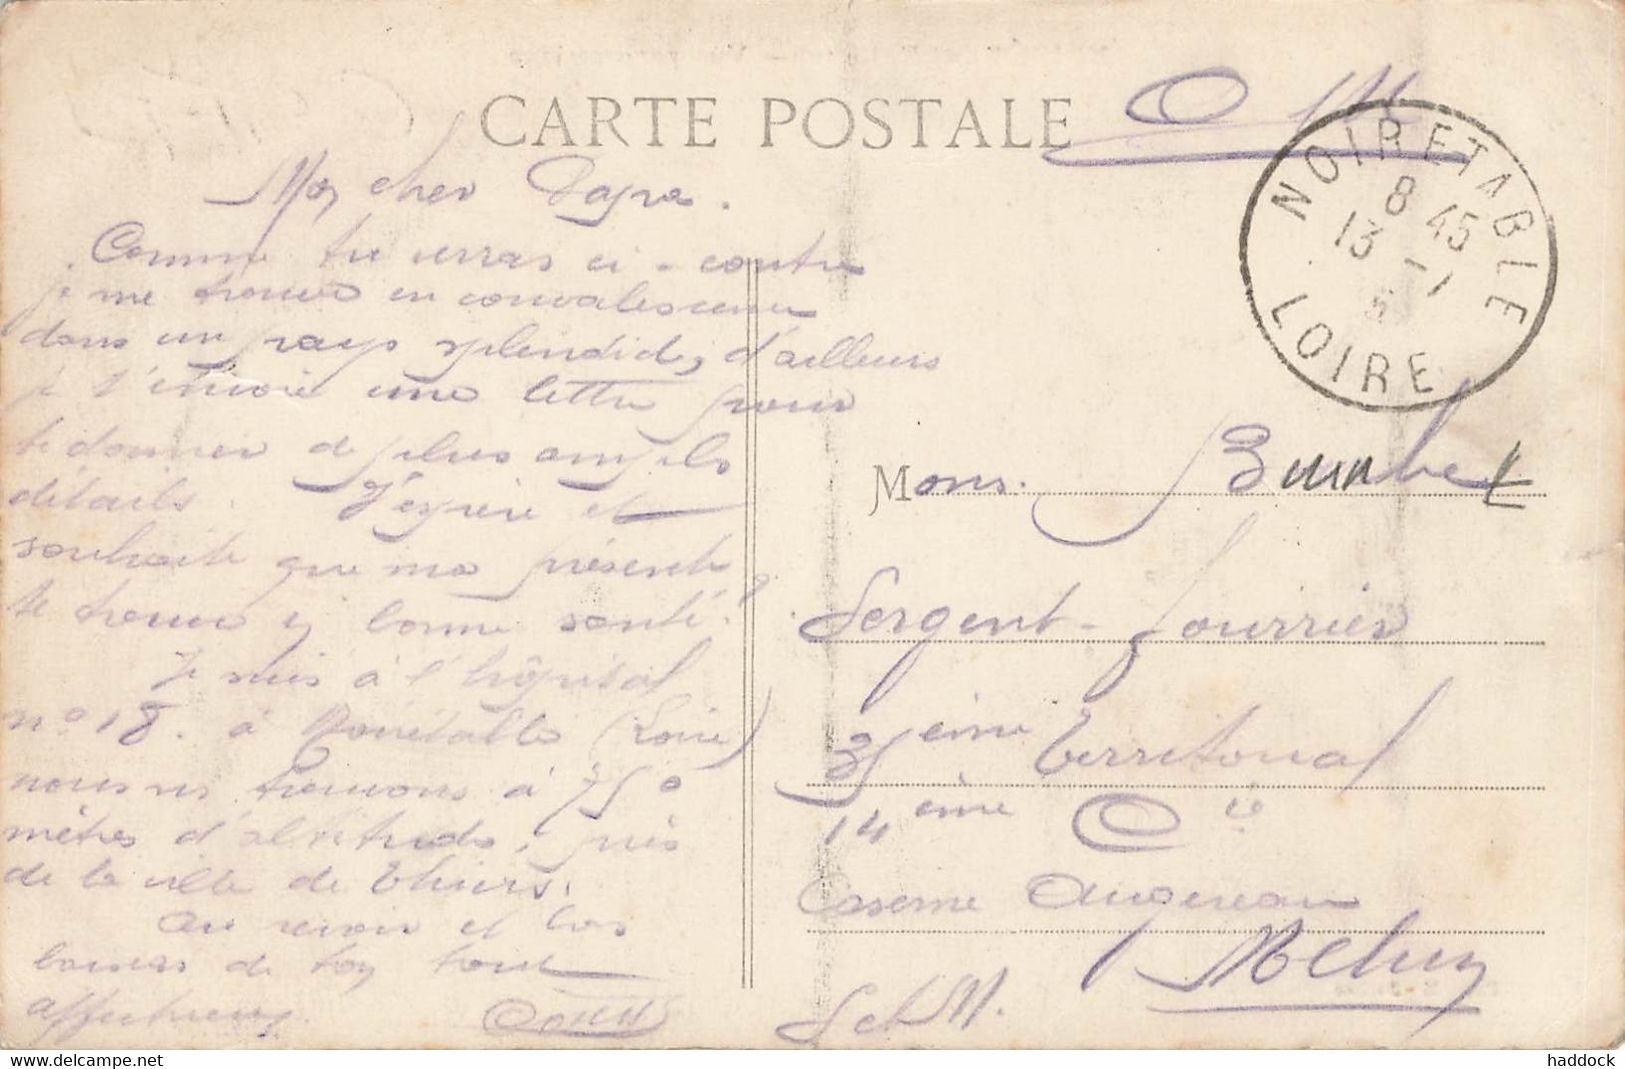 CARTE POSTALE
O M
NOIRETABLE
8 45
13 - 1
LOIRE
Mon cher Papa.
Comme tu verras ci-contre
je me trouve en convalescence
dans un pays splendide, d'ailleurs
je t'envoie une lettre pour
te donner de plus amples
détails. J'espère et
souhaite que ma présente
te trouve en bonne santé!
Je suis à l'hôpital
n° 18. à Noirétable (Loire)
nous nous trouvons à 750
mètres d'altitude, près
de la ville de Thiers.
Au revoir et bons
baisers de ton tout
affectueux.
Mons.
Sergent-fourrier
35ème Territorial
14ème Cie
Caserne Augereau
Melun
S et M.
www.delcampe.net
haddock